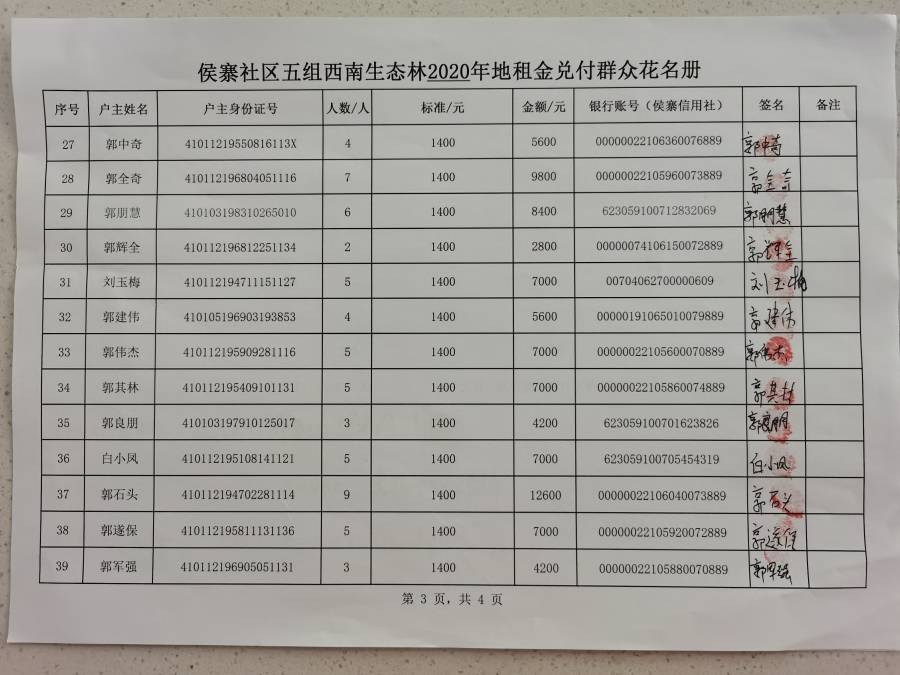 侯寨社区五组西南生态林2020年地租金兑付群众花名册
序号 户主姓名 户主身份证号 人数/人 标准/元 金额/元 银行账号（侯寨信用社） 签名 备注
27 郭中奇 41011219550816113X 4 1400 5600 00000022106360076889 郭中奇
28 郭全奇 410112196804051116 7 1400 9800 00000022105960073889 郭全奇
29 郭朋慧 410103198310265010 6 1400 8400 623059100712832069 郭朋慧
30 郭辉全 410112196812251134 2 1400 2800 00000074106150072889 郭辉全
31 刘玉梅 410112194711151127 5 1400 7000 00704062700000609 刘玉梅
32 郭建伟 410105196903193853 4 1400 5600 00000191065010079889 郭建伟
33 郭伟杰 410112195909281116 5 1400 7000 00000022105600070889 郭伟杰
34 郭其林 410112195409101131 5 1400 7000 00000022105860074889 郭其林
35 郭良朋 410103197910125017 3 1400 4200 623059100701623826 郭良朋
36 白小凤 410112195108141121 5 1400 7000 623059100705454319 白小凤
37 郭石头 410112194702281114 9 1400 12600 00000022106040073889 郭石头
38 郭遂保 410112195811131136 5 1400 7000 00000022105920072889 郭遂保
39 郭军强 410112196905051131 3 1400 4200 00000022105880070889 郭军强
第 3 页，共 4 页